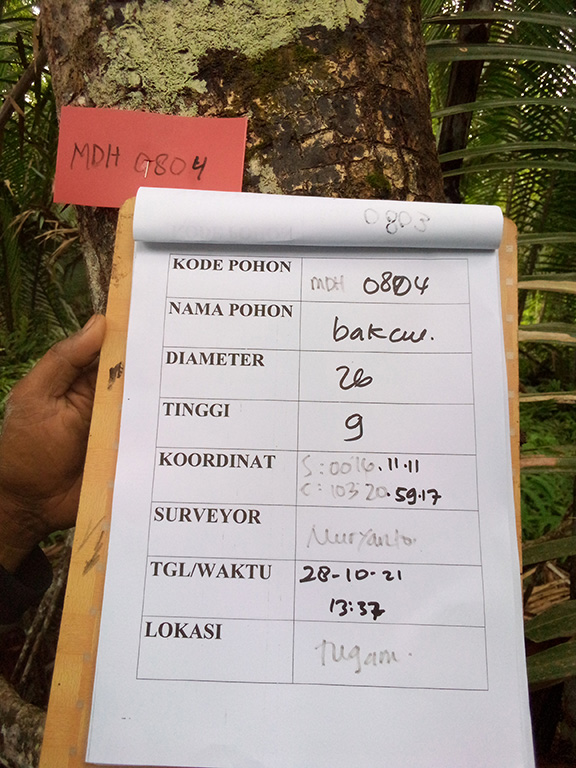 MDH 0804
0803
KODE POHON MDH 0804
NAMA POHON bakau.
DIAMETER 26
TINGGI 9
KOORDINAT S:0016.11.11
E:10320.59.17
SURVEYOR Nuryanto.
TGL/WAKTU 28-10-21
13:37
LOKASI